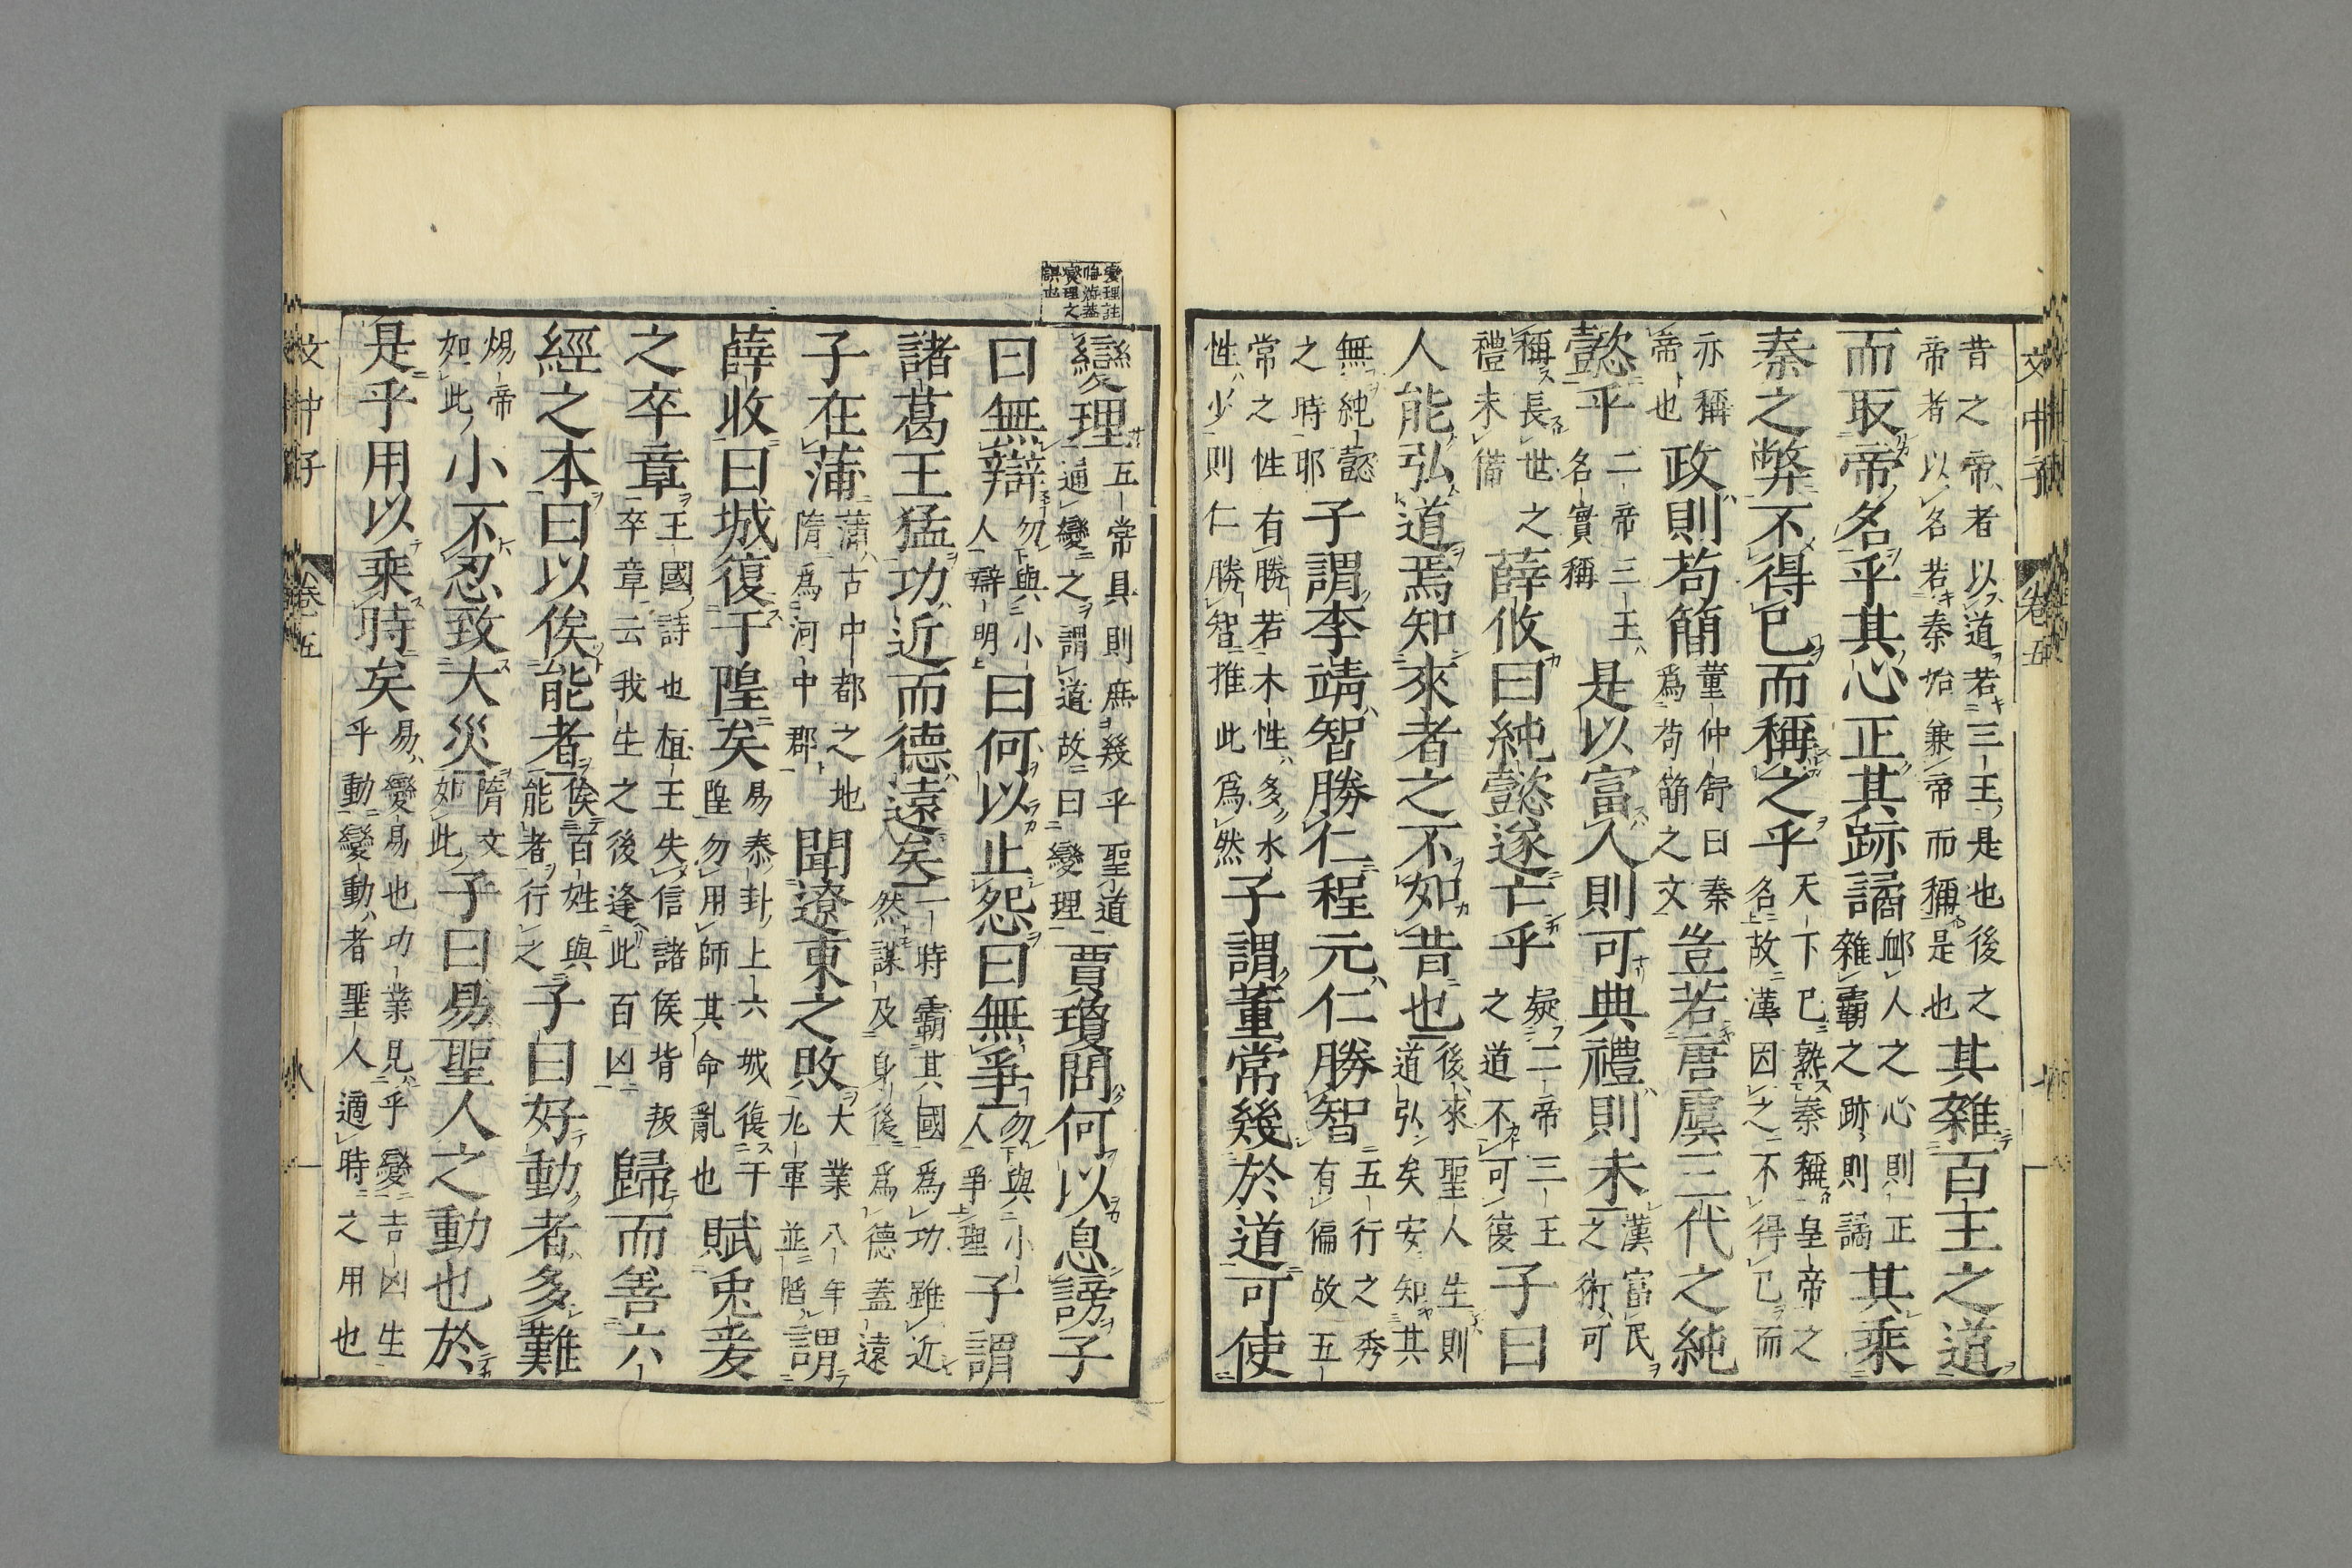 文中子　卷五
昔之帝者以道若三王是也後之
帝者以名若秦始兼帝而稱是也
其雜百王之道
而取帝名乎其心正其跡譎
衂人之心則正
雜霸之跡則譎
其乘
秦之弊不得已而稱之乎
天下已熟秦稱皇帝之
名故漢因之不得已而
亦稱
帝也
政則苟簡
董仲舒曰秦
爲苟簡之文
豈若唐虞三代之純
懿乎
二帝三王
名實稱
是以富人則可典禮則未
漢富民
之術可
稱長世之
禮未備
薛收曰純懿遂亡乎
疑二帝三王
之道不可復
子曰
人能弘道焉知來者之不如昔也
後來聖人生則
道弘矣安知其
無純懿
之時耶
子謂李靖智勝仁程元仁勝智
五行之秀
有偏故五
常之性有勝若木性多水
性少則仁勝智推此爲然
子謂董常幾於道可使
變理註
變理之
誤也
變理
五常具則庶幾乎聖道
適變之謂道故曰變理
賈瓊問何以息謗子
曰無辯
勿與小
人辯明
曰何以止怨曰無爭
勿與小
人爭理
子謂
諸葛王猛功近而德遠矣
二時霸其國爲功雖近
然謀及身後爲德蓋遠
子在蒲
蒲古中都之地
隋爲河中郡
聞遼東之敗
大業八年
九軍並陷
謂
薛收曰城復于隍矣
易泰卦上六城復于
隍勿用師其命亂也
賦兎爰
之卒章
王國詩也桓王失信諸侯背叛
卒章云我生之後逢此百凶
歸而善六
經之本曰以俟能者
俟百姓與
能者行之
子曰好動者多難
煬帝
如此
小不忍致大災
隋文
如此
子曰易聖人之動也於
是乎用以乘時矣
易變易也功業見乎變吉凶生
乎動變動者聖人適時之用也
文中子　卷五　八